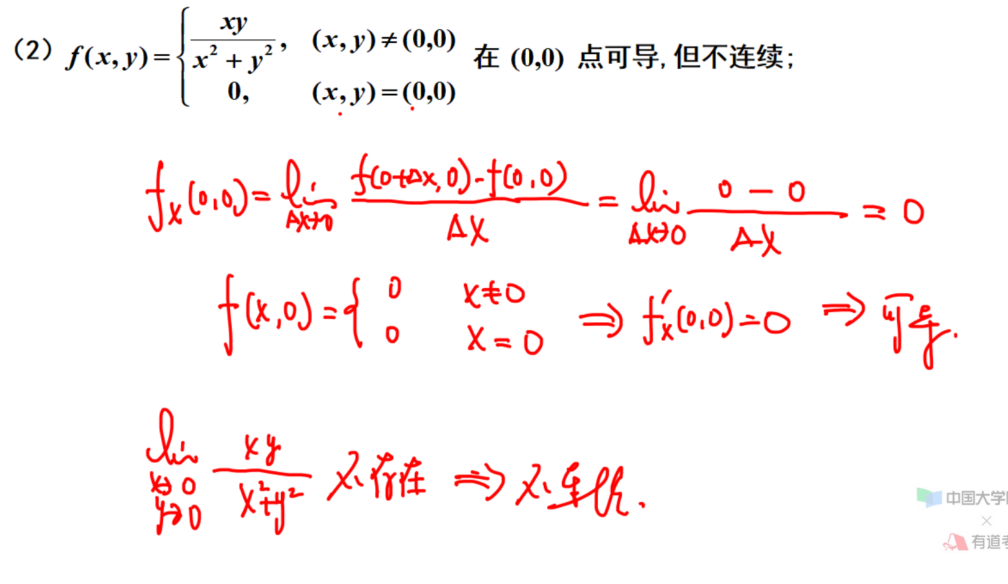 (2) f(x,y)={ xy/(x²+y²), (x,y)≠(0,0) 在 (0,0) 点可导,但不连续;
0, (x,y)=(0,0)
fx(0,0)=lim Δx→0 (f(0+Δx,0)-f(0,0))/Δx = lim Δx→0 (0-0)/Δx = 0
f(x,0)={ 0 x≠0
0 x=0 ⇒ f'x(0,0)=0 ⇒ 可导.
lim x→0 y→0 xy/(x²+y²) 不存在 ⇒ 不连续.
中国大学
×
有道考